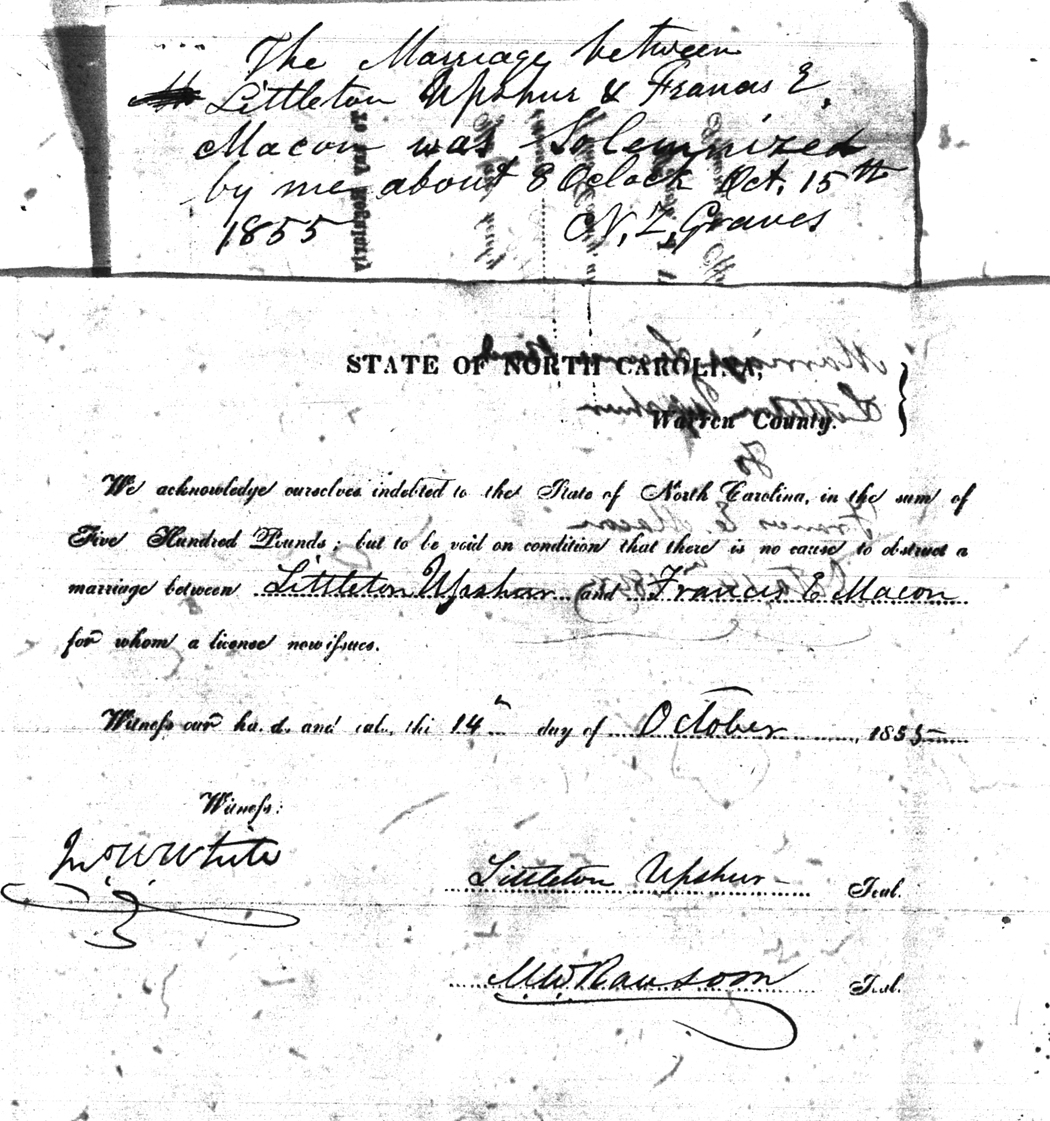 The Marriage between
Littleton Upshur & Francis E.
Macon was Solemnized
by me about 8 Oclock Oct. 15th
1855 N. Z. Graves
STATE OF NORTH CAROLINA,
Warren County.
We acknowledge ourselves indebted to the State of North Carolina, in the sum of
Five Hundred Pounds; but to be void on condition that there is no cause to obstruct a
marriage between Littleton Upshur and Francis E Macon
for whom a license now issues.
Witness our ha.d. and the 14th day of October 1855
Witness:
Jno W White
Littleton Upshur Seal.
M W Ransom Seal.
To any Regularly
Marriage Bond
Littleton Upshur
To
Francis E. Macon